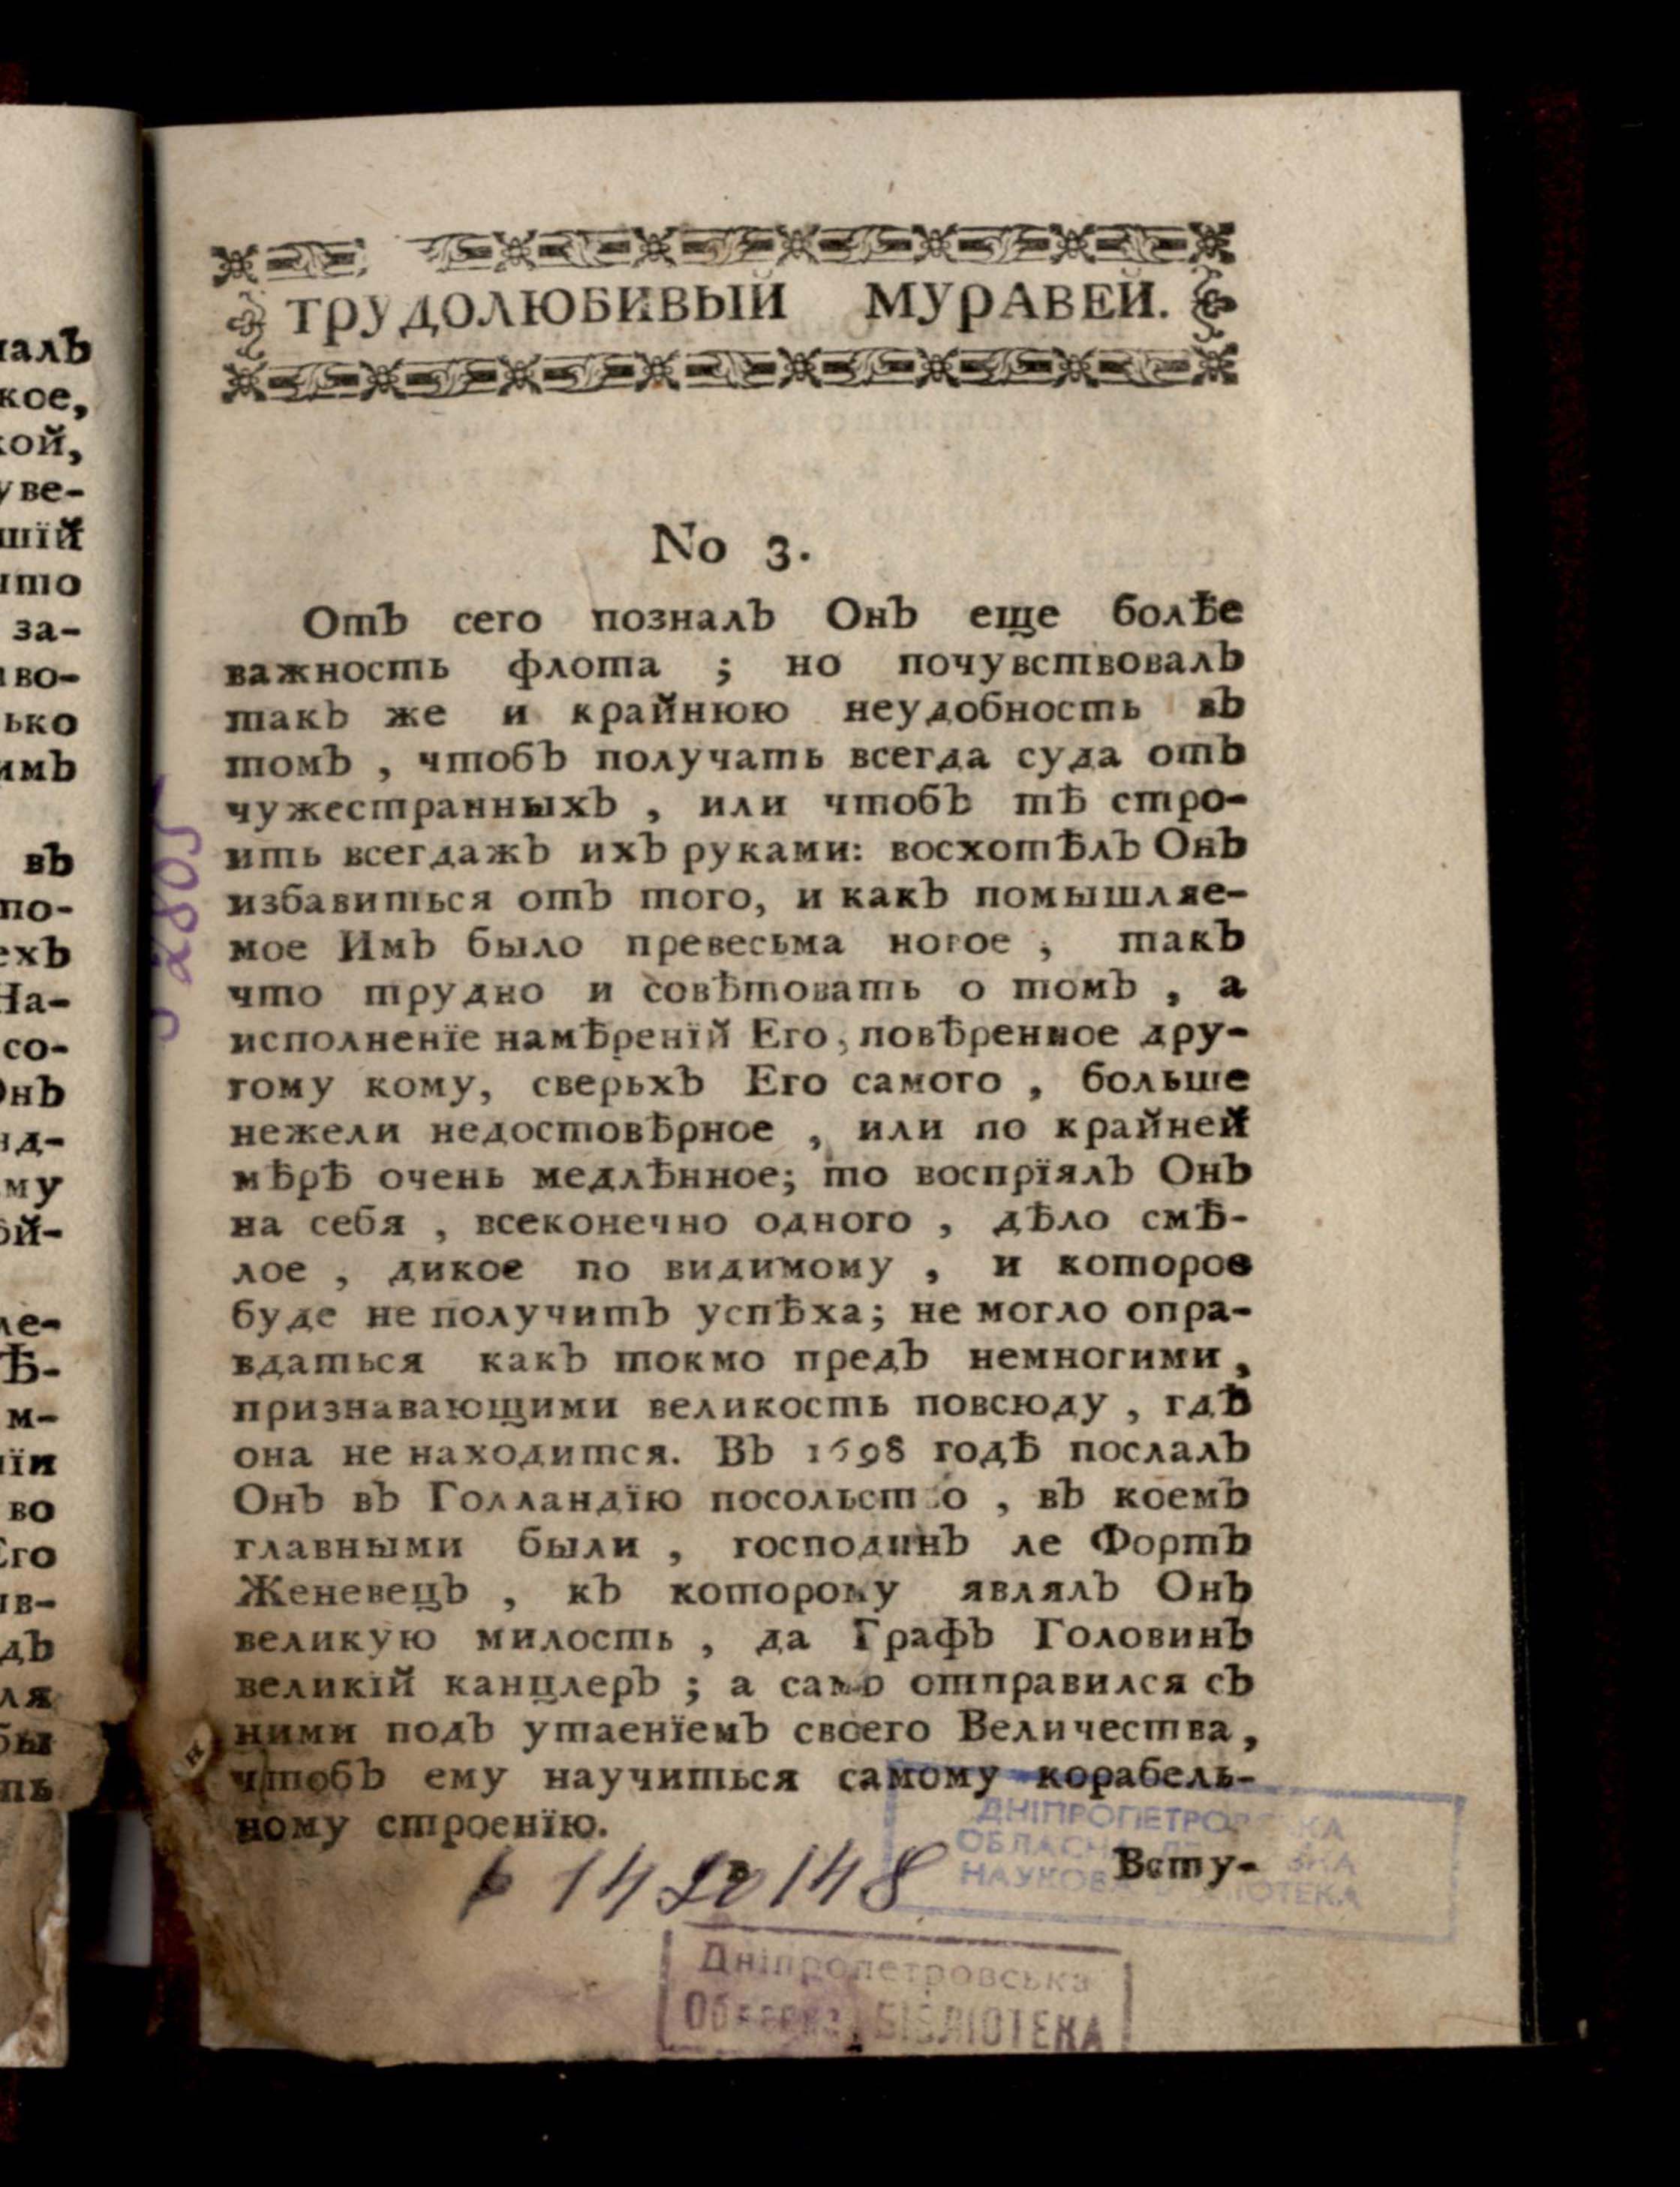 налъ
кое,
кой,
уве-
шїй
что
за-
во-
ько
имъ
въ
по-
ехъ
На-
со-
Онъ
нд-
му
ой-
ле-
Ѣ-
м-
нїи
во
Его
ыв-
дъ
ля
бы
ть
ТРУДОЛЮБИВЫЙ МУРАВЕЙ.
No 3.
Отъ сего позналъ Онъ еще болѣе
важность флота ; но почувствовалъ
такъ же и крайнюю неудобность въ
томъ , чтобъ получать всегда суда отъ
чужестранныхъ , или чтобъ тѣ стро-
ить всегдажъ ихъ руками: восхотѣлъ Онъ
избавиться отъ того, и какъ помышляе-
мое Имъ было превесьма новое , такъ
что трудно и совѣтовать о томъ , а
исполненїе намѣренїй Его, повѣренное дру-
гому кому, сверьхъ Его самого , больше
нежели недостовѣрное , или по крайней
мѣрѣ очень медлѣнное; то воспрїялъ Онъ
на себя , всеконечно одного , дѣло смѣ-
лое , дикое по видимому , и которое
буде не получитъ успѣха; не могло опра-
вдаться какъ токмо предъ немногими ,
признавающими великость повсюду , гдѣ
она не находится. Въ 1698 годѣ послалъ
Онъ въ Голландїю посольство , въ коемъ
главными были , господинъ ле Фортъ
Женевецъ , къ которому являлъ Онъ
великую милость , да Графъ Головинъ
великїй канцлеръ ; а самъ отправился съ
ними подъ утаенїемъ своего Величества,
чтобъ ему научиться самому корабель-
ному строенїю.
Всту-
ДНІПРОПЕТРОВСЬКА
НАУКОВА БІБЛІОТЕКА
Дніпропетровська
Обласна БІБЛІОТЕКА